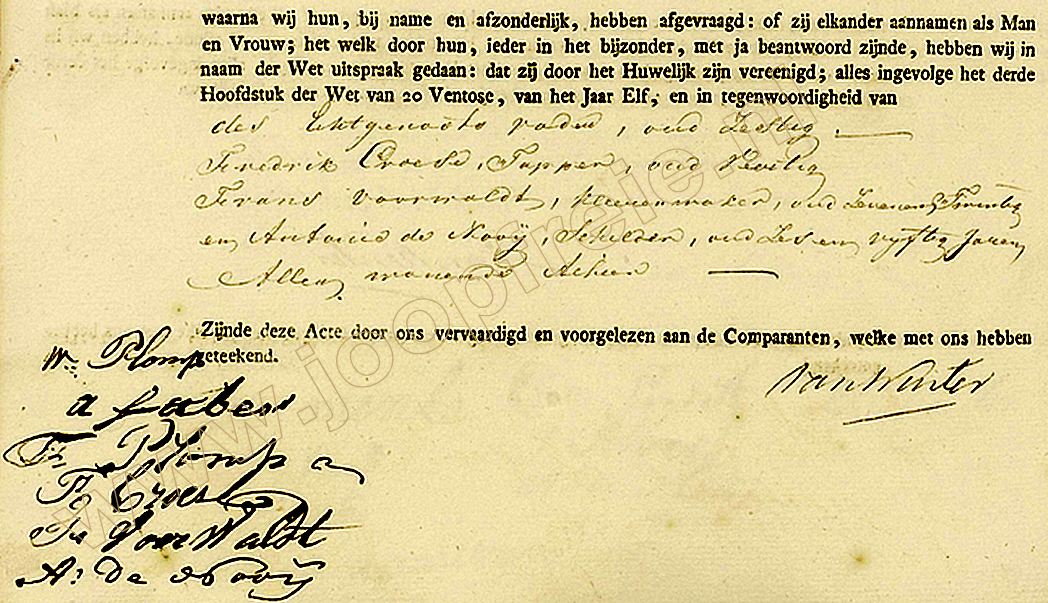 waarna wij hun, bij name en afzonderlijk, hebben afgevraagd: of zij elkander aannamen als Man
en Vrouw; het welk door hun, ieder in het bijzonder, met ja beantwoord zijnde, hebben wij in
naam der Wet uitspraak gedaan: dat zij door het Huwelijk zijn vereenigd; alles ingevolge het derde
Hoofdstuk der Wet van 20 Ventose, van het Jaar Elf, en in tegenwoordigheid van
des Echtgenoots vader, oud Zestig
Fredrik Croese, Tapper, oud Veertig
Frans Voorwaldt, oud Zevenen Twintig
en Antonie de Nooij, Schilder, oud Zes en vyftig Jaren
Allen wonende Alhier
Zijnde deze Acte door ons vervaardigd en voorgelezen aan de Comparanten, welke met ons hebben
geteekend.
van Winter
Wm Plomp
a
Fr Plomp
Fr Croese
Fr VoorWaldt
A: De Nooij
www.joopfreije.nl